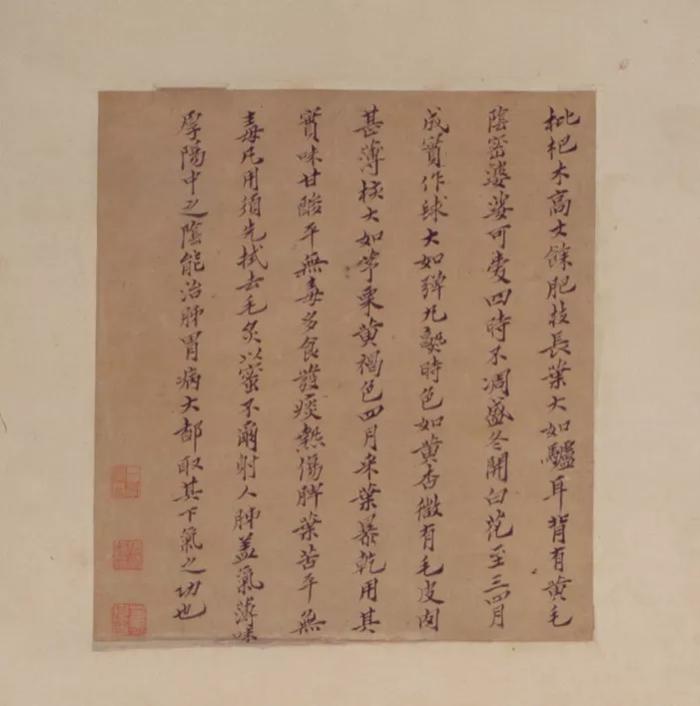 枇杷木高丈餘肥枝長葉大如驢耳背有黃毛
陰密婆娑可愛四時不凋盛冬開白花至三四月
成實作球大如彈丸熟時色如黃杏微有毛皮肉
甚薄核大如茅栗黃褐色四月采葉暴乾用其
實味甘酸平無毒多食發痰熱傷脾葉苦平無
毒凡用須先拭去毛炙以蜜不爾射人肺蓋氣薄味
厚陽中之陰能治肺胃病大都取其下氣之功也